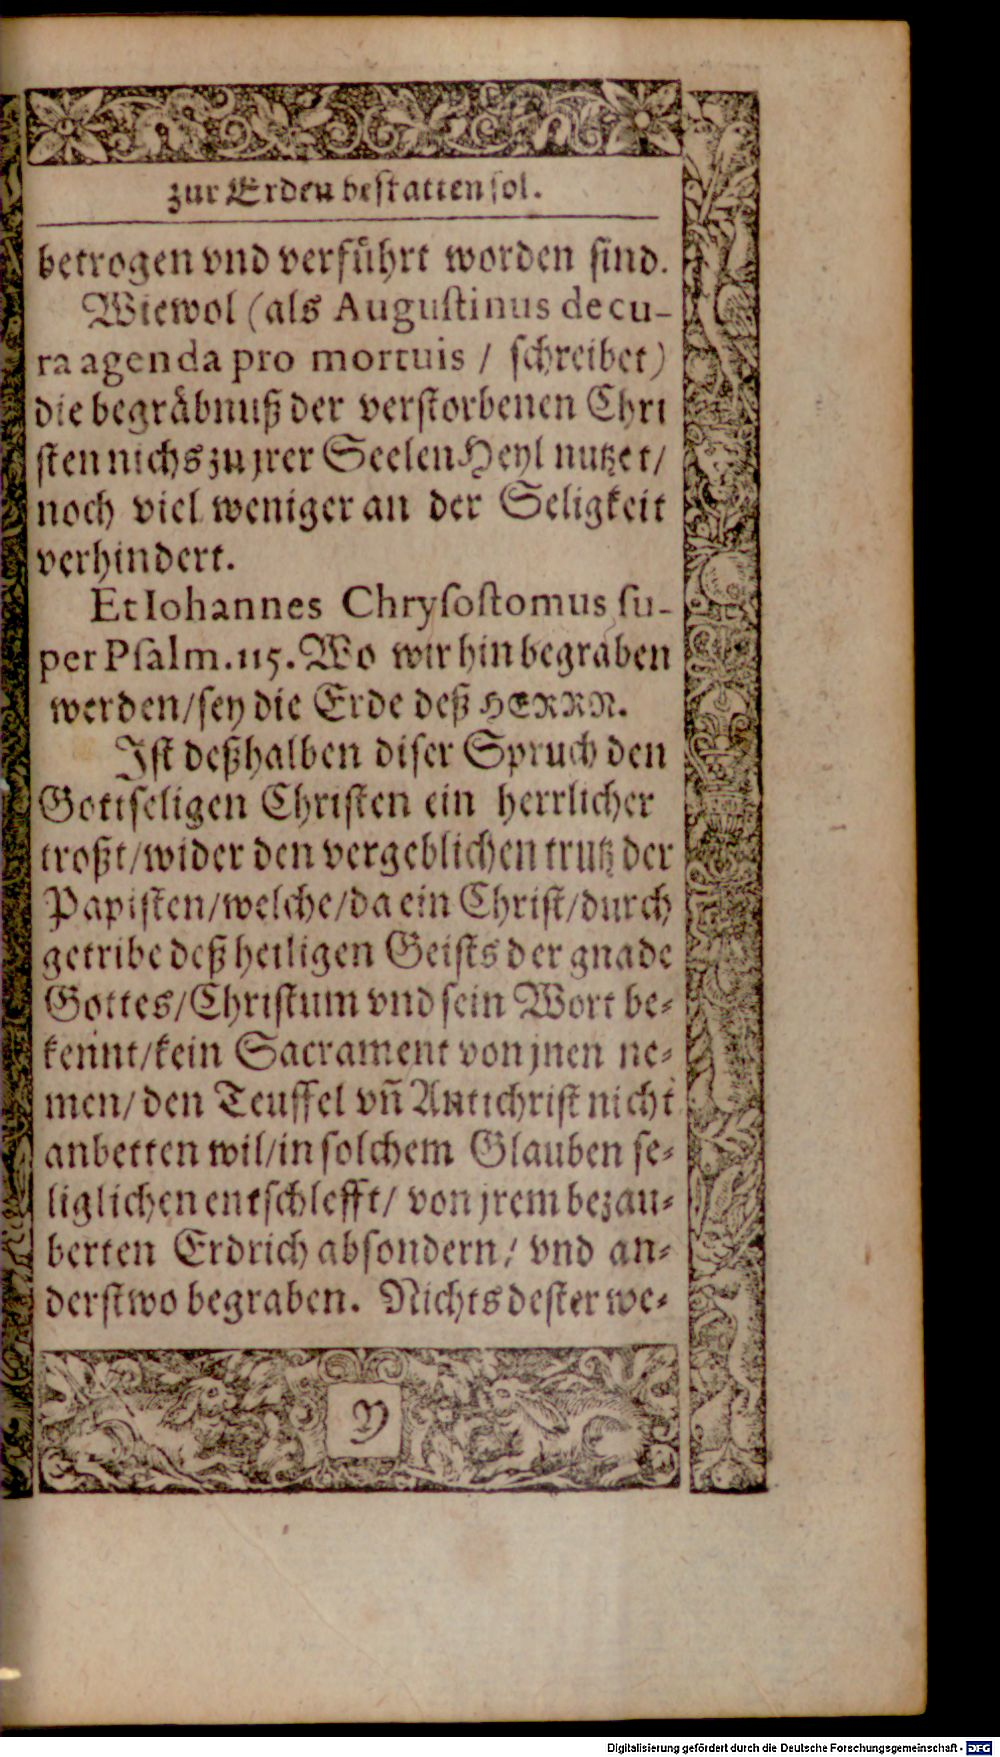 zur Erden bestatten sol.
betrogen vnd verfuͤhrt worden sind.
Wiewol (als Augustinus de cu-
ra agenda pro mortuis / schreibet)
die begraͤbnuß der verstorbenen Chri
sten nichs zu jrer Seelen Heyl nutzet/
noch viel weniger an der Seligkeit
verhindert.
Et Iohannes Chrysostomus su-
per Psalm. 115. Wo wir hin begraben
werden/sey die Erde deß HERRN.
Ist deßhalben diser Spruch den
Gottseligen Christen ein herrlicher
troßt/wider den vergeblichen trutz der
Papisten/welche/da ein Christ/durch
getribe deß heiligen Geists der gnade
Gottes/Christum vnd sein Wort be-
kennt/kein Sacrament von jnen ne-
men/den Teuffel vñ Antichrist nicht
anbetten wil/in solchem Glauben se-
liglichen entschlefft/ von jrem bezau-
berten Erdrich absondern/ vnd an-
derstwo begraben. Nichts dester we-
Y
Digitalisierung gefördert durch die Deutsche Forschungsgemeinschaft - DFG